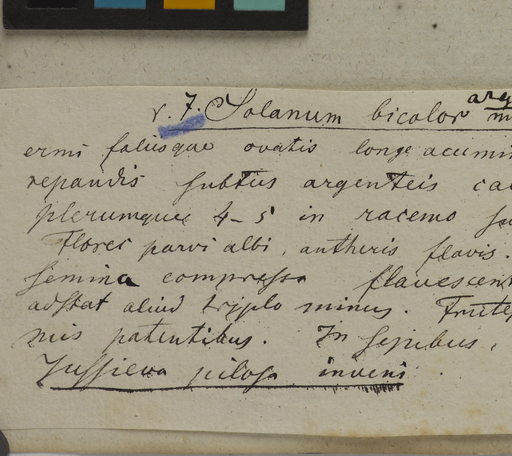 v. 7. Solanum bicolor arg
ermi foliisque ovatis longe acumin
repandis subtus argenteis ca
plerumque 4-5 in racemo su
Flores parvi albi, antheris flavis.
semina compressa flavescent
adstat aliud triplo minus. Frute
mis patentibus. In sepibus,
Jussieva pilosa inveni